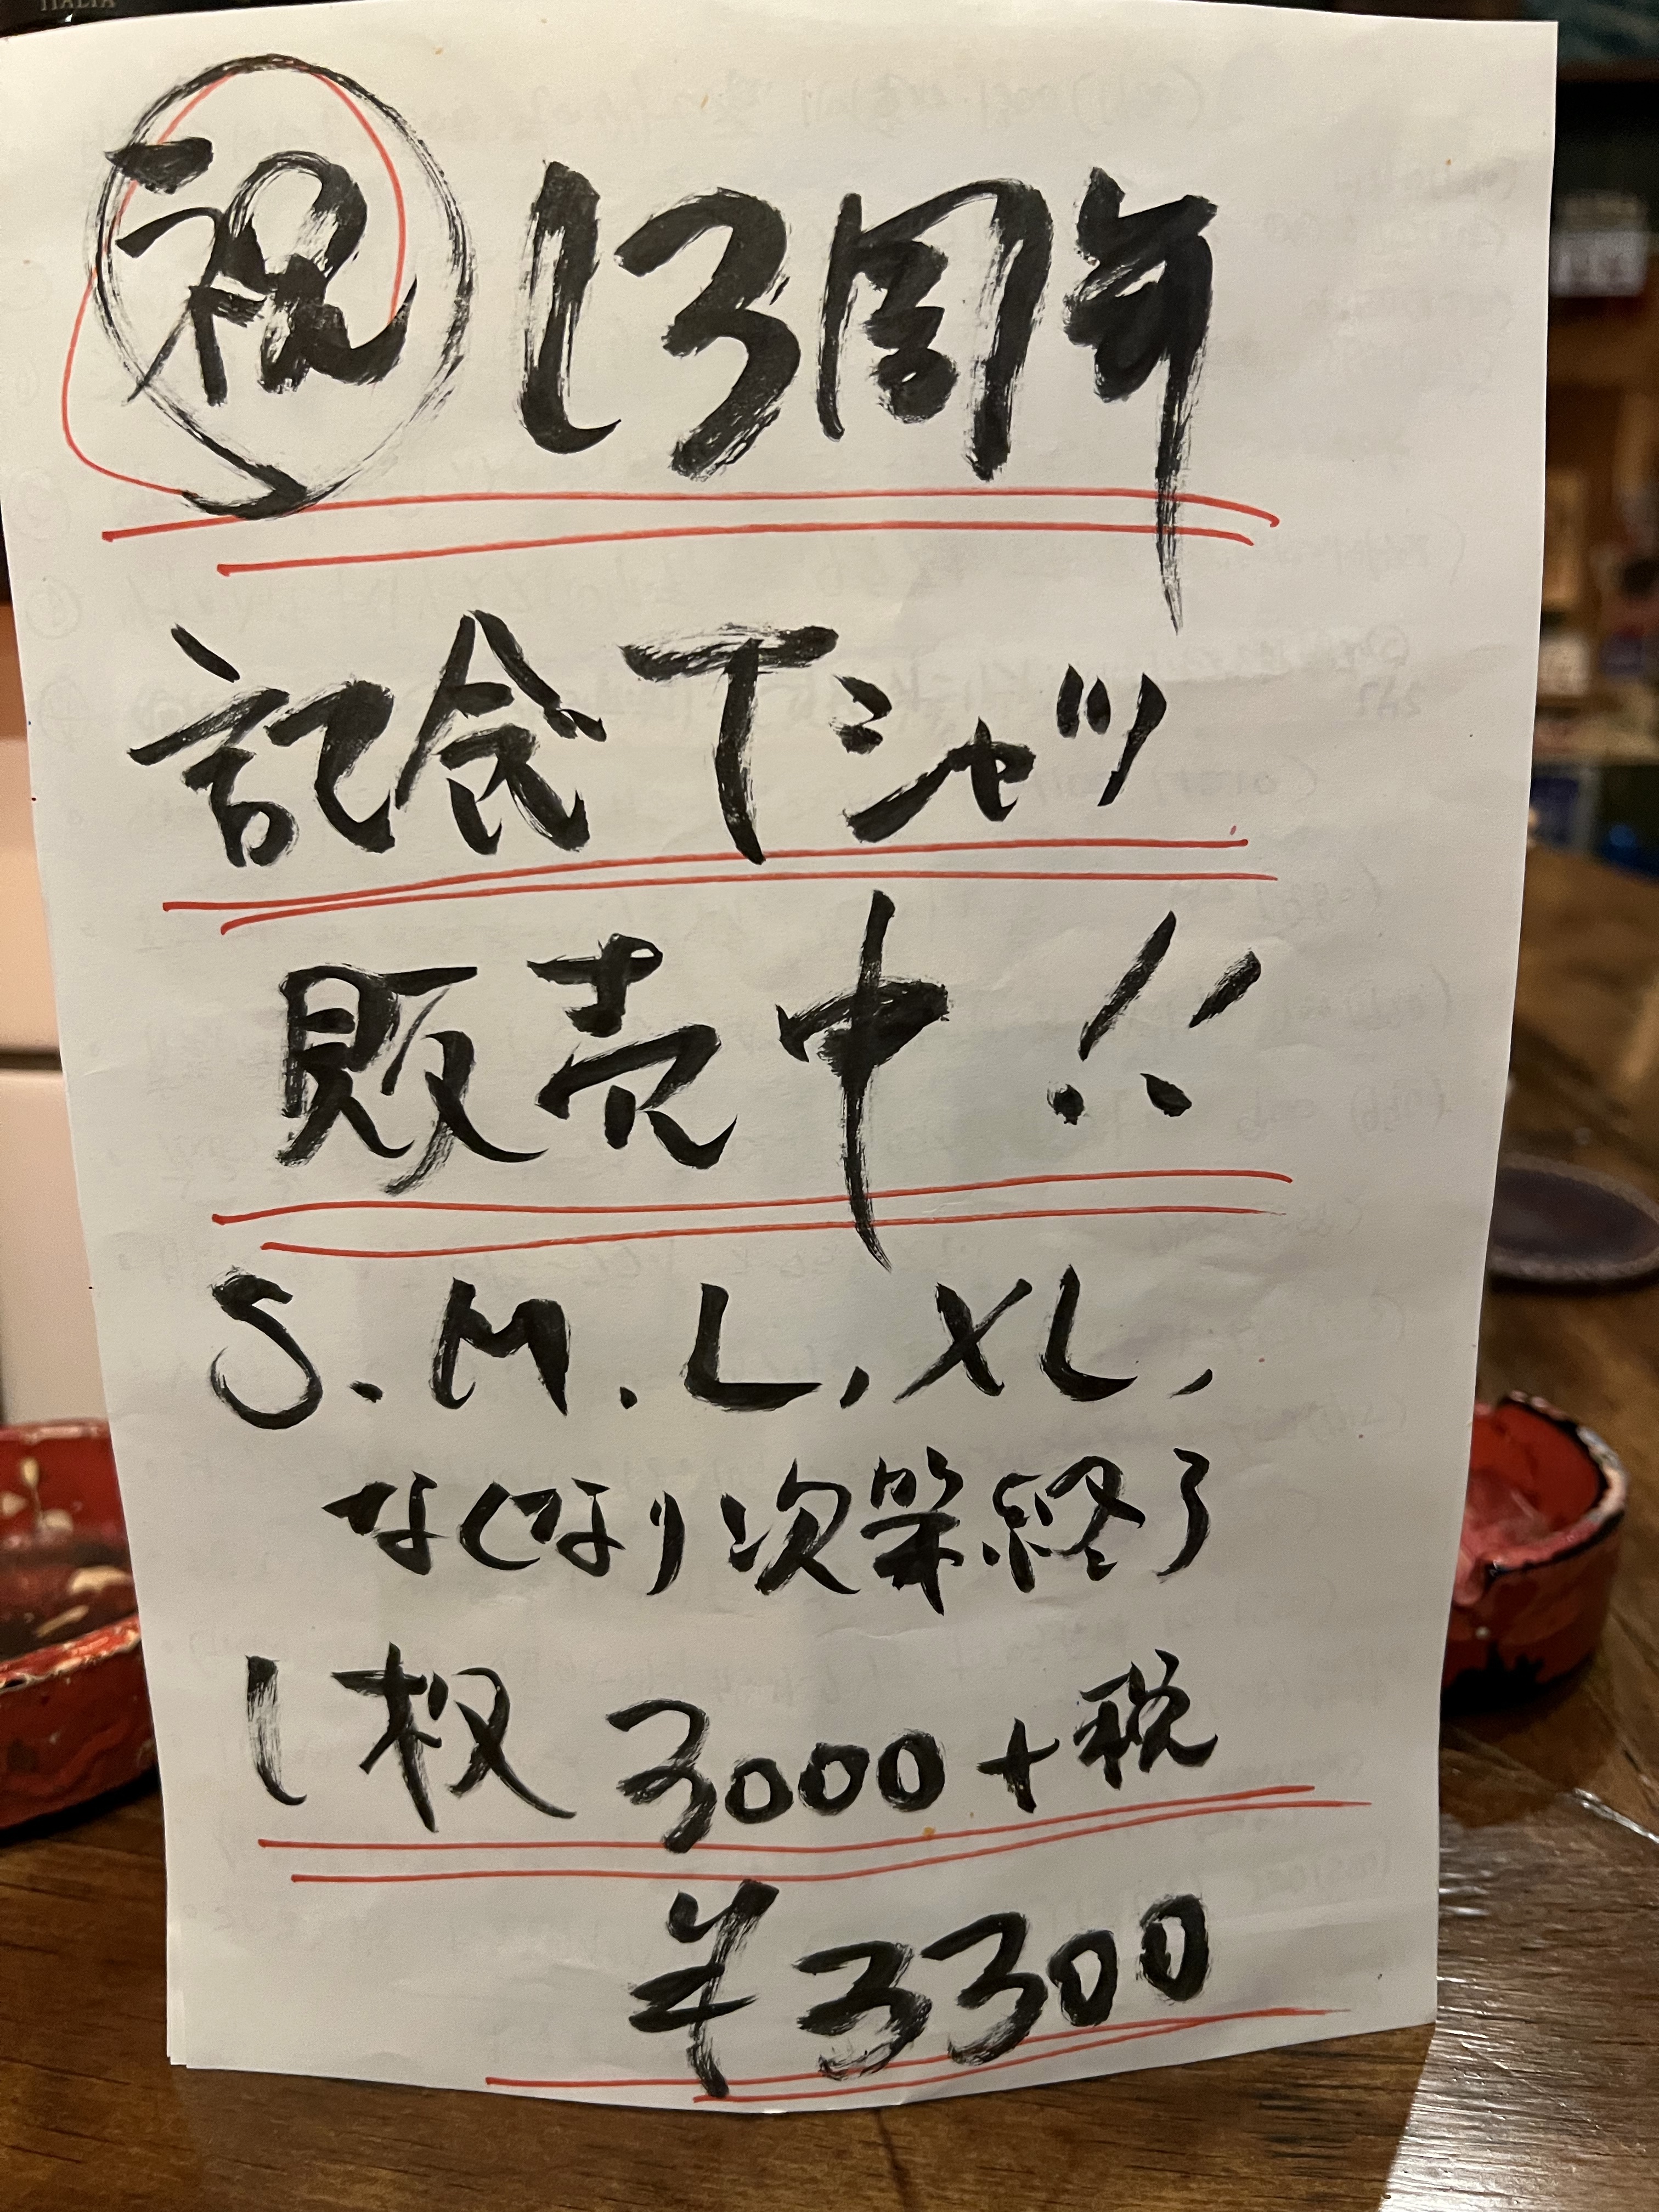 ITALIA
祝 13周年
記念Tシャツ
販売中!!
S.M.L,XL,
なくなり次第終了
1枚 3000+税
¥3300